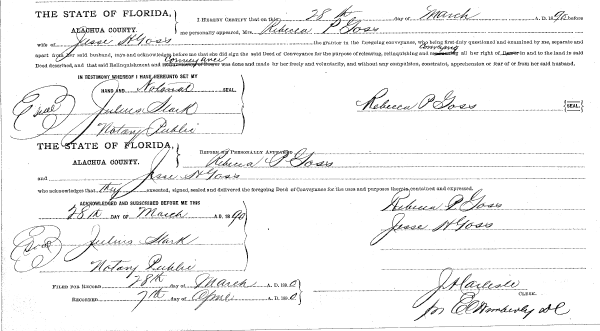 THE STATE OF FLORIDA,
ALACHUA COUNTY.
I HEREBY CERTIFY that on this 28th day of March A. D. 1890 before
me personally appeared, Mrs. Rebecca P Goss
wife of Jesse H Goss the grantor in the foregoing conveyance, who being first duly questioned and examined by me, separate and
apart from her said husband, says and acknowledges before me that she did sign the said Deed of Conveyance for the purpose of releasing, relinquishing and conveying all her right of Dower in and to the land in said
Deed described, and that said Relinquishment and Conveyance was done and made by her freely and voluntarily, and without any compulsion, constraint, apprehension or fear of or from her said husband.
IN TESTIMONY WHEREOF I HAVE HEREUNTO SET MY
HAND AND Notarial SEAL.
Seal
Julius Stark
Notary Public
Rebecca P Goss SEAL.
THE STATE OF FLORIDA,
ALACHUA COUNTY.
BEFORE ME PERSONALLY APPEARED
Rebecca P Goss
and Jesse H Goss
who acknowledges that they executed, signed, sealed and delivered the foregoing Deed of Conveyance for the uses and purposes therein contained and expressed.
ACKNOWLEDGED AND SUBSCRIBED BEFORE ME THIS
28th DAY OF March A. D. 1890
Rebecca P Goss
Jesse H Goss
Seal
Julius Stark
Notary Public
FILED FOR RECORD 28th day of March A. D. 1890
RECORDED 7th day of April A. D. 1890
J A Carlisle CLERK.
pr E C Wimberley DC